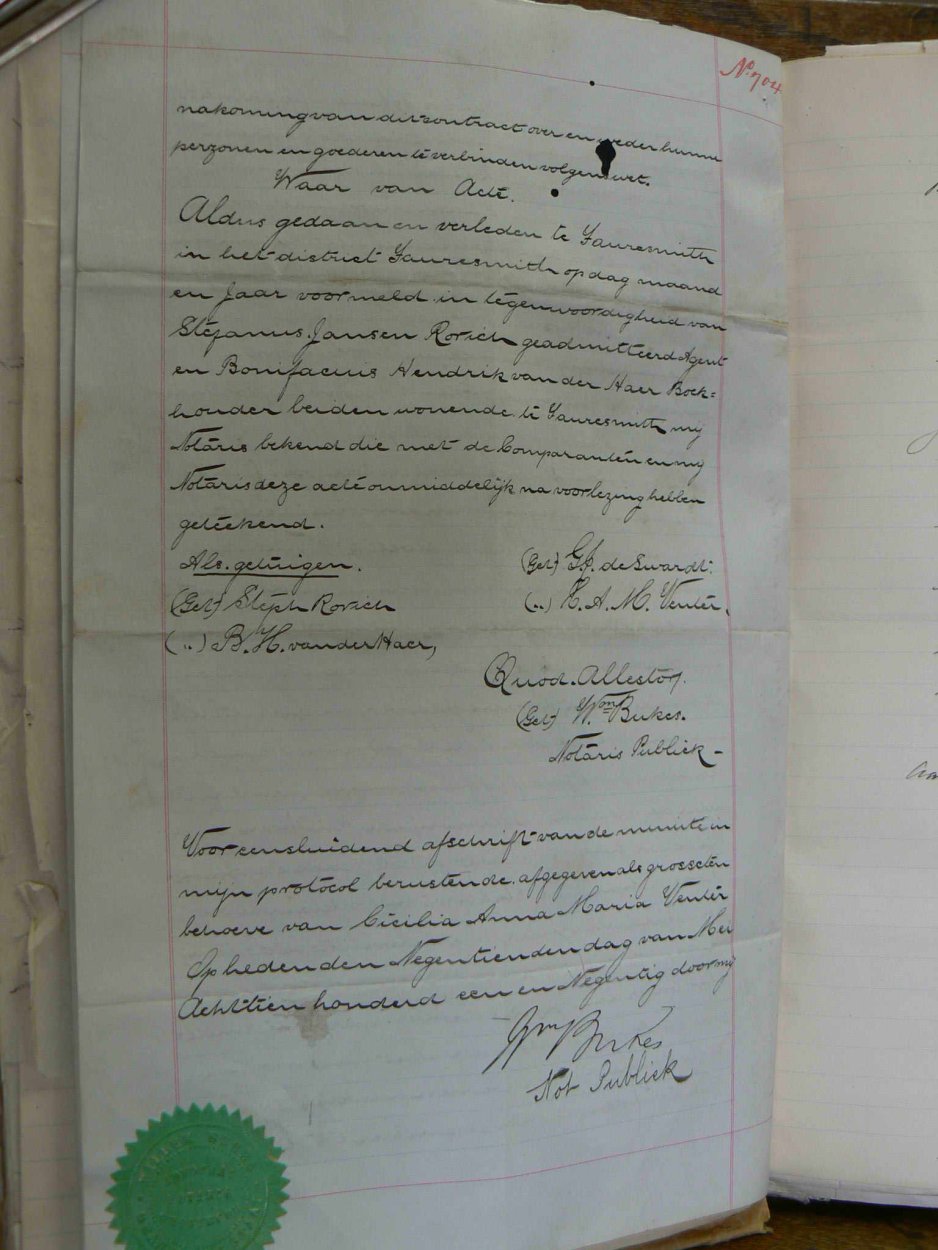 No. 704
nakoming van dit contract over en weder hunne
perzonen en goederen te verbinden volgens wet.
Waar van Acte.
Aldus gedaan en verleden te Fauresmith
in het district Fauresmith op dag maand
en Jaar voormeld in tegenwoordigheid van
Stefanus Jansen Rorich geadmitteerd Agent
en Bonifacius Hendrik van der Haer Boek=
houder beiden wonende te Fauresmith my
Notaris bekend die met de Comparanten en my
Notaris deze acte onmiddelijk na voorlezing hebben
geteekend.
Als getuigen.
(Get) Steph Rorich
(..) B. H. van der Haer,
(Get) G. J. de Swardt.
(..) C. A. M. Venter.
Quod Attestor
(Get) Wm Bukes.
Notaris Publiek -
Voor eensluidend afschrift van de minute in
mijn protocol berustende afgegeven als grosse ten
behoeve van Cicilia Anna Maria Venter
Op heden den Negentienden dag van Mei
Achttien honderd een en Negentig door my
Wm Bukes
Not Publiek